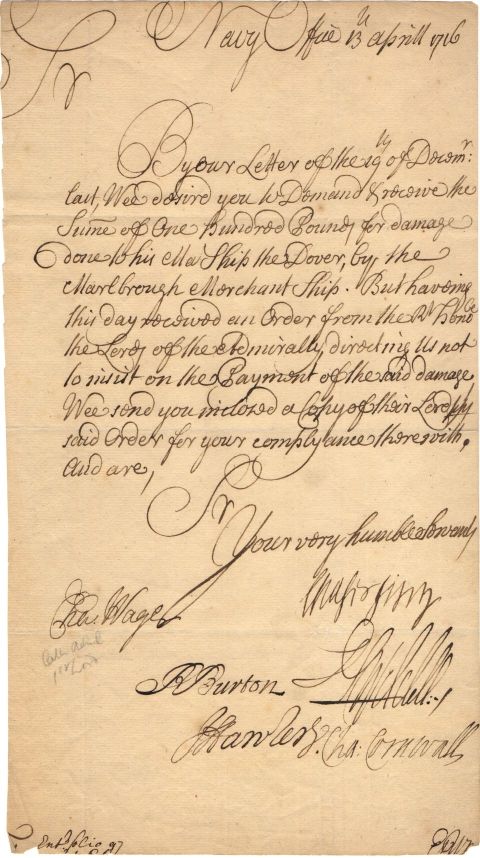 Navy Office 13th Aprill 1716
Sr
By our Letter of the 19th of Decemr:
last, Wee desired you to Demand & receive the
Sum̃e of One Hundred Pounds for damage
done to his Ma Ship the Dover, by the
Marlbrough Merchant Ship. But haveing
this day received an Order from the Rt. Honble
the Lords of the Admiralty directing Us not
to insist on the Payment of the said damage
Wee send you inclosed a Copy of their Lordpps
said Order for your complyance therewith,
And are,
Sr
Your very humble Servants
Cha. Wager
R Burton
Cha: Cornwall
Entd folio 97